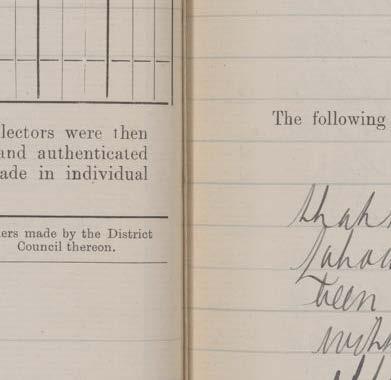 lectors were then
and authenticated
ade in individual
ers made by the District
Council thereon.
The following
that
been